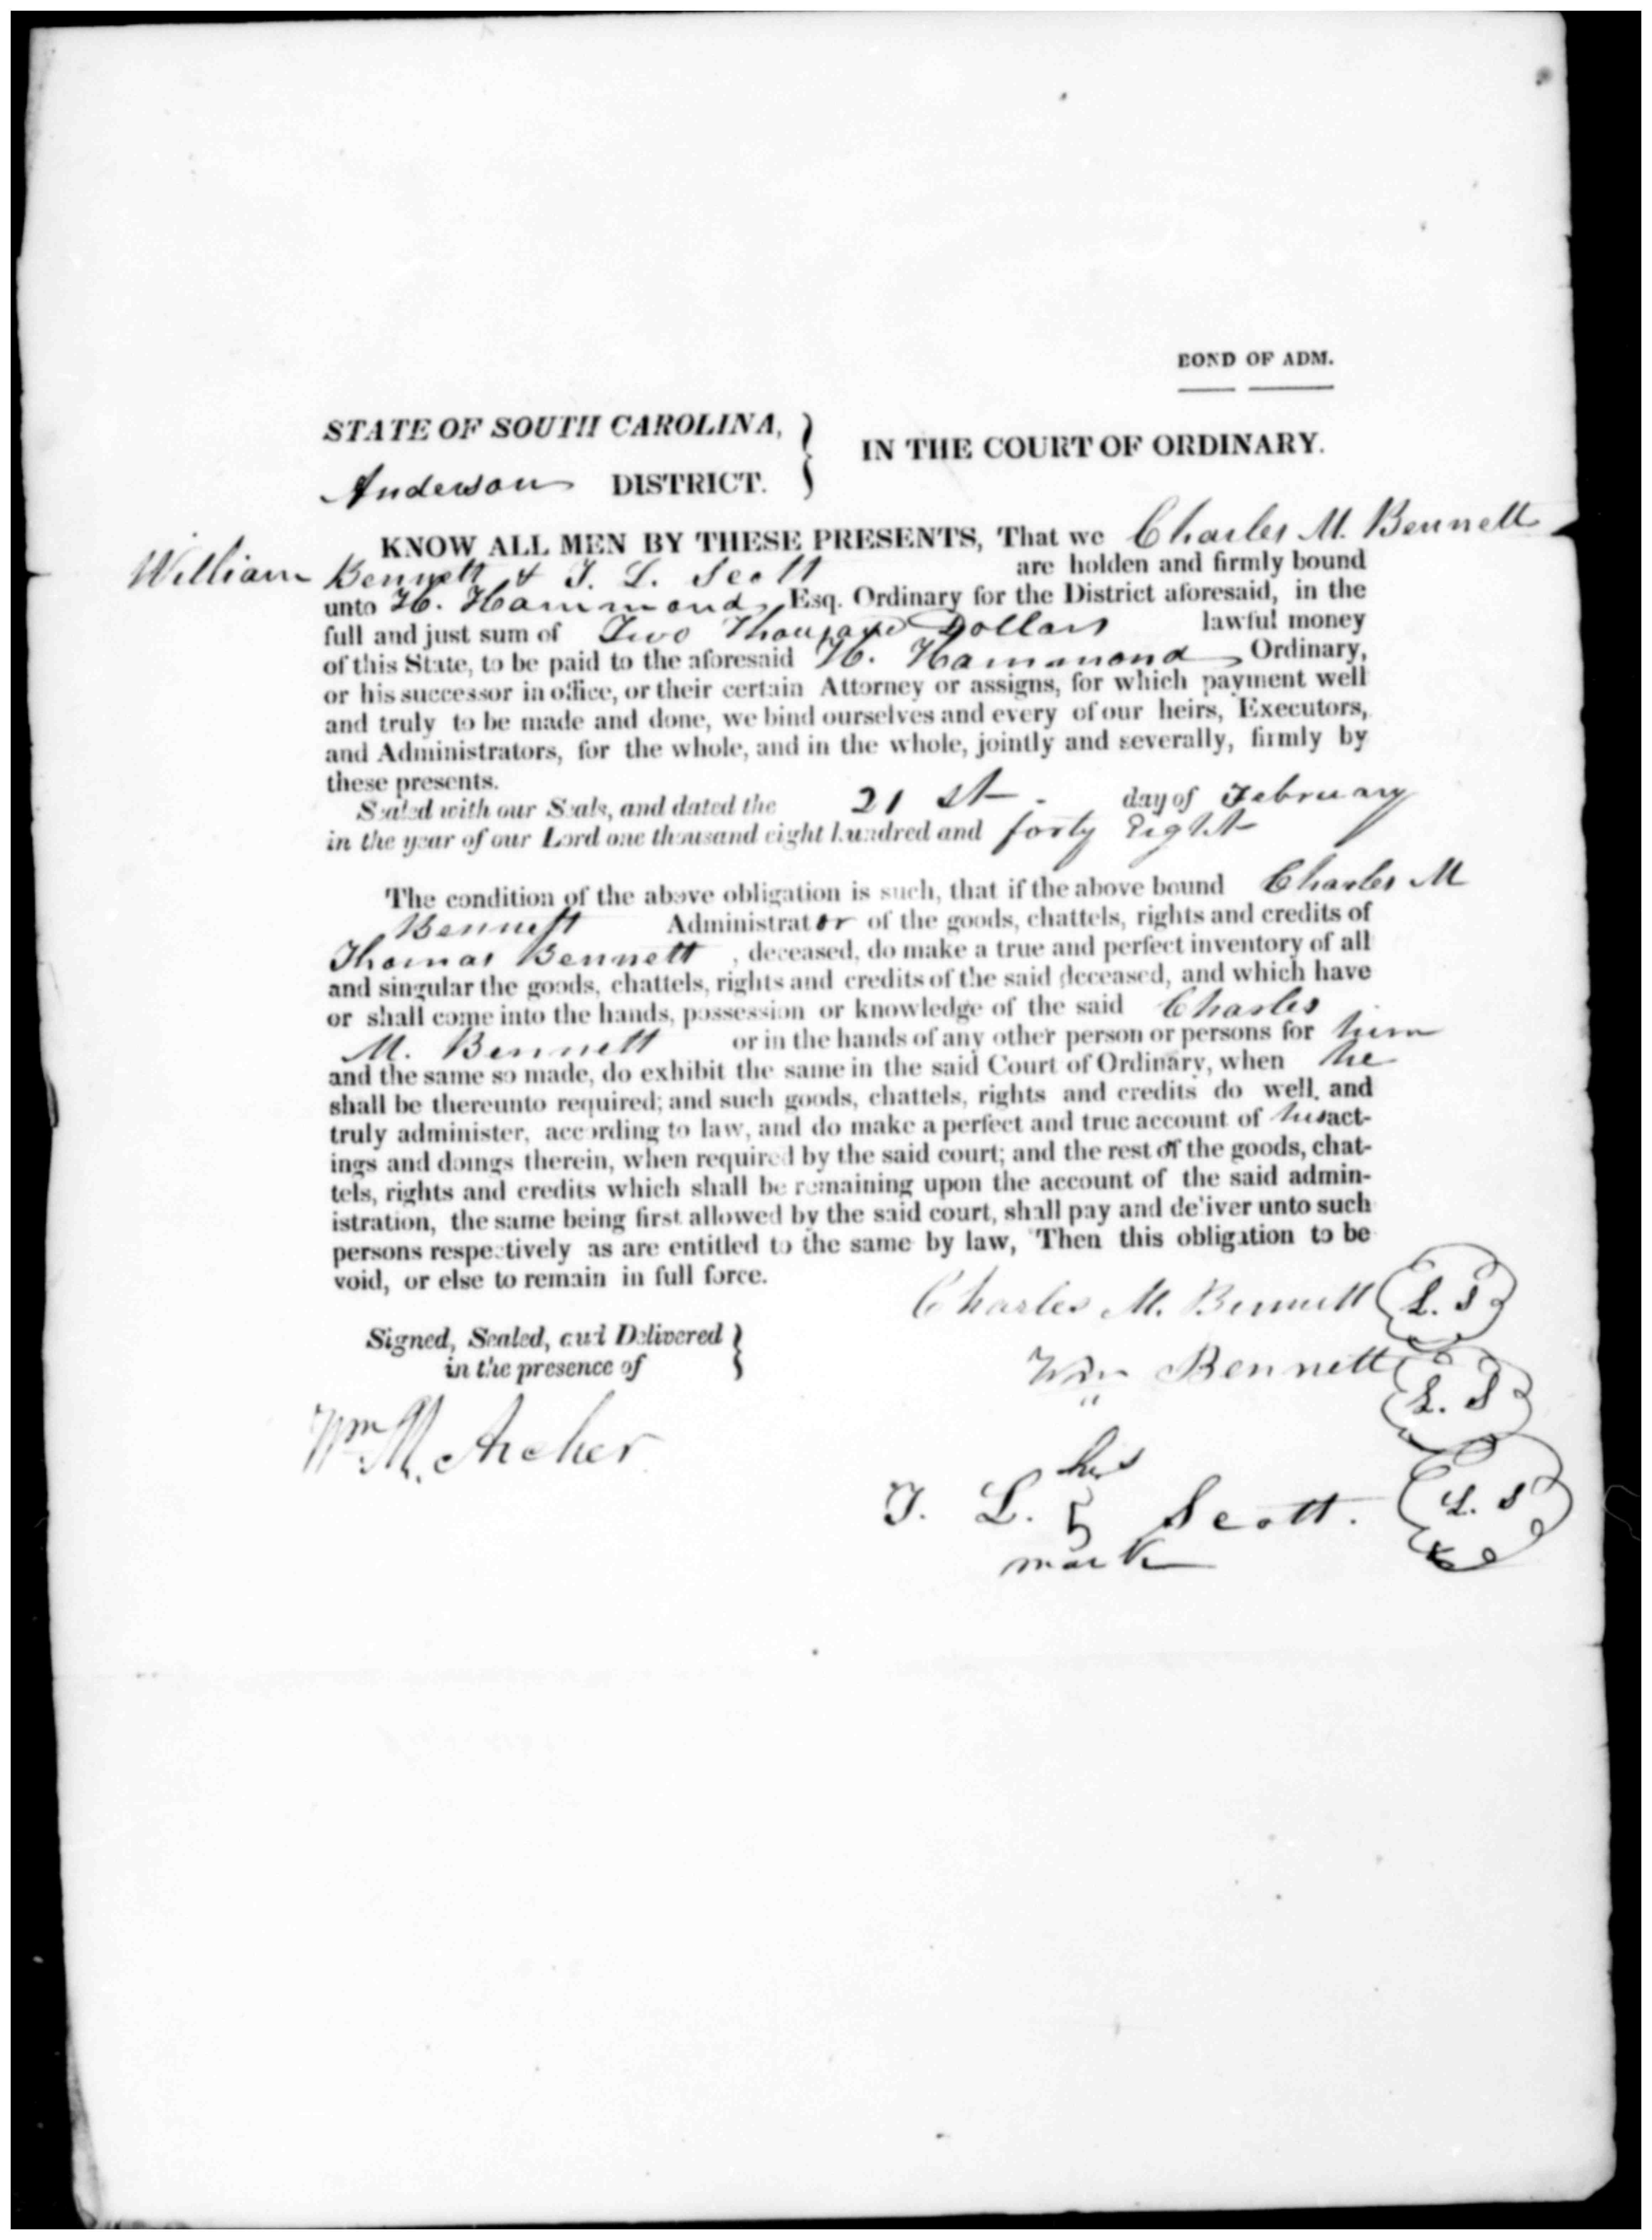 BOND OF ADM.
STATE OF SOUTH CAROLINA,
IN THE COURT OF ORDINARY.
Anderson DISTRICT.
KNOW ALL MEN BY THESE PRESENTS, That we Charles M. Bennett
William Bennett & T. L. Scott are holden and firmly bound
unto H. Hammond, Esq. Ordinary for the District aforesaid, in the
full and just sum of Two Thousand Dollars lawful money
of this State, to be paid to the aforesaid H. Hammond Ordinary,
or his successor in office, or their certain Attorney or assigns, for which payment well
and truly to be made and done, we bind ourselves and every of our heirs, Executors,
and Administrators, for the whole, and in the whole, jointly and severally, firmly by
these presents.
Sealed with our Seals, and dated the 21 st. day of February
in the year of our Lord one thousand eight hundred and forty Eight
The condition of the above obligation is such, that if the above bound Charles M
Bennett Administrator of the goods, chattels, rights and credits of
Thomas Bennett, deceased, do make a true and perfect inventory of all
and singular the goods, chattels, rights and credits of the said deceased, and which have
or shall come into the hands, possession or knowledge of the said Charles
M. Bennett or in the hands of any other person or persons for him
and the same so made, do exhibit the same in the said Court of Ordinary, when he
shall be thereunto required; and such goods, chattels, rights and credits do well and
truly administer, according to law, and do make a perfect and true account of his act-
ings and doings therein, when required by the said court; and the rest of the goods, chat-
tels, rights and credits which shall be remaining upon the account of the said admin-
istration, the same being first allowed by the said court, shall pay and deliver unto such
persons respectively as are entitled to the same by law, Then this obligation to be
void, or else to remain in full force.
Charles M. Bennett L. S
Signed, Sealed, and Delivered
in the presence of
Wm Bennett L. S
Wm M. Archer
his
T. L. 5 Scott. L. S
mark